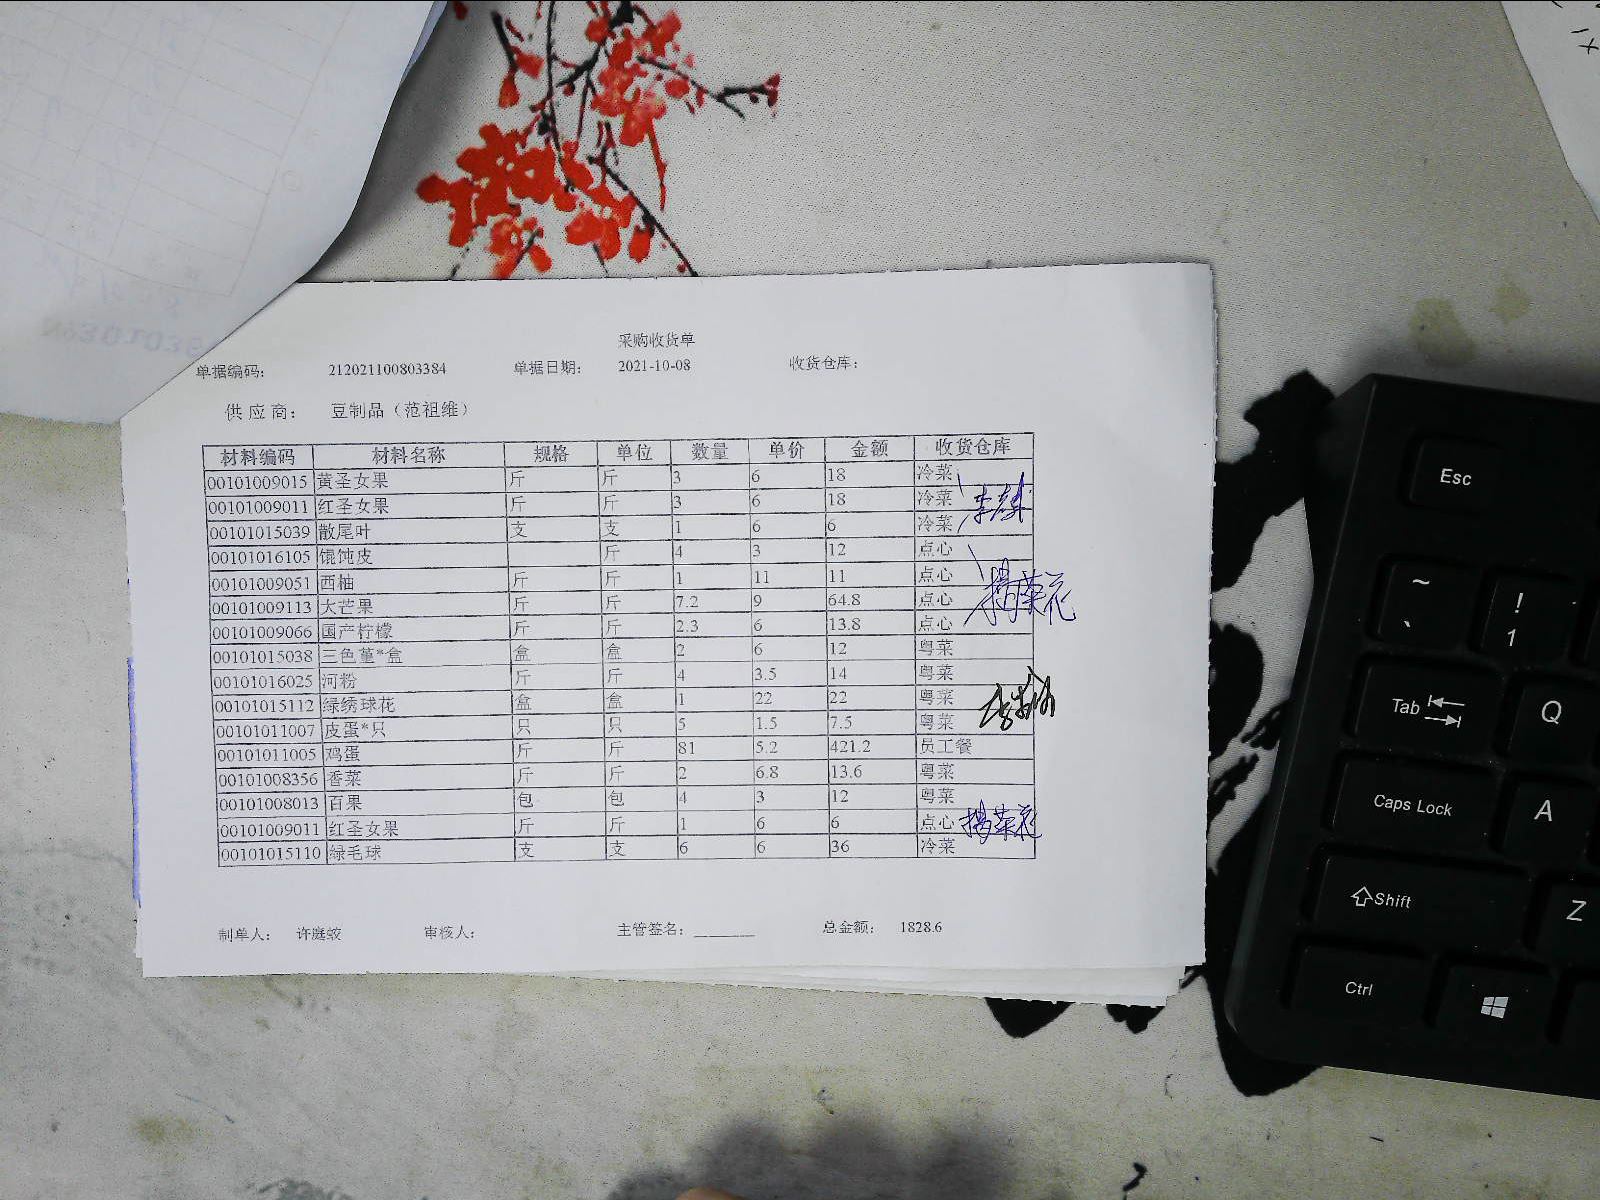 采购收货单
单据编码： 212021100803384 单据日期： 2021-10-08 收货仓库：
供应商： 豆制品（范祖维）
材料编码 材料名称 规格 单位 数量 单价 金额 收货仓库
00101009015 黄圣女果 斤 斤 3 6 18 冷菜
00101009011 红圣女果 斤 斤 3 6 18 冷菜
00101015039 散尾叶 支 支 1 6 6 冷菜
00101016105 馄饨皮 斤 4 3 12 点心
00101009051 西柚 斤 斤 1 11 11 点心
00101009113 大芒果 斤 斤 7.2 9 64.8 点心
00101009066 国产柠檬 斤 斤 2.3 6 13.8 点心
00101015038 三色堇*盒 盒 盒 2 6 12 粤菜
00101016025 河粉 斤 斤 4 3.5 14 粤菜
00101015112 绿绣球花 盒 盒 1 22 22 粤菜
00101011007 皮蛋*只 只 只 5 1.5 7.5 粤菜
00101011005 鸡蛋 斤 斤 81 5.2 421.2 员工餐
00101008356 香菜 斤 斤 2 6.8 13.6 粤菜
00101008013 百果 包 包 4 3 12 粤菜
00101009011 红圣女果 斤 斤 1 6 6 点心
00101015110 绿毛球 支 支 6 6 36 冷菜
制单人： 许庭蛟 审核人： 主管签名：_______ 总金额： 1828.6
Esc
~ !
` 1
Tab Q
Caps Lock A
Shift Z
Ctrl